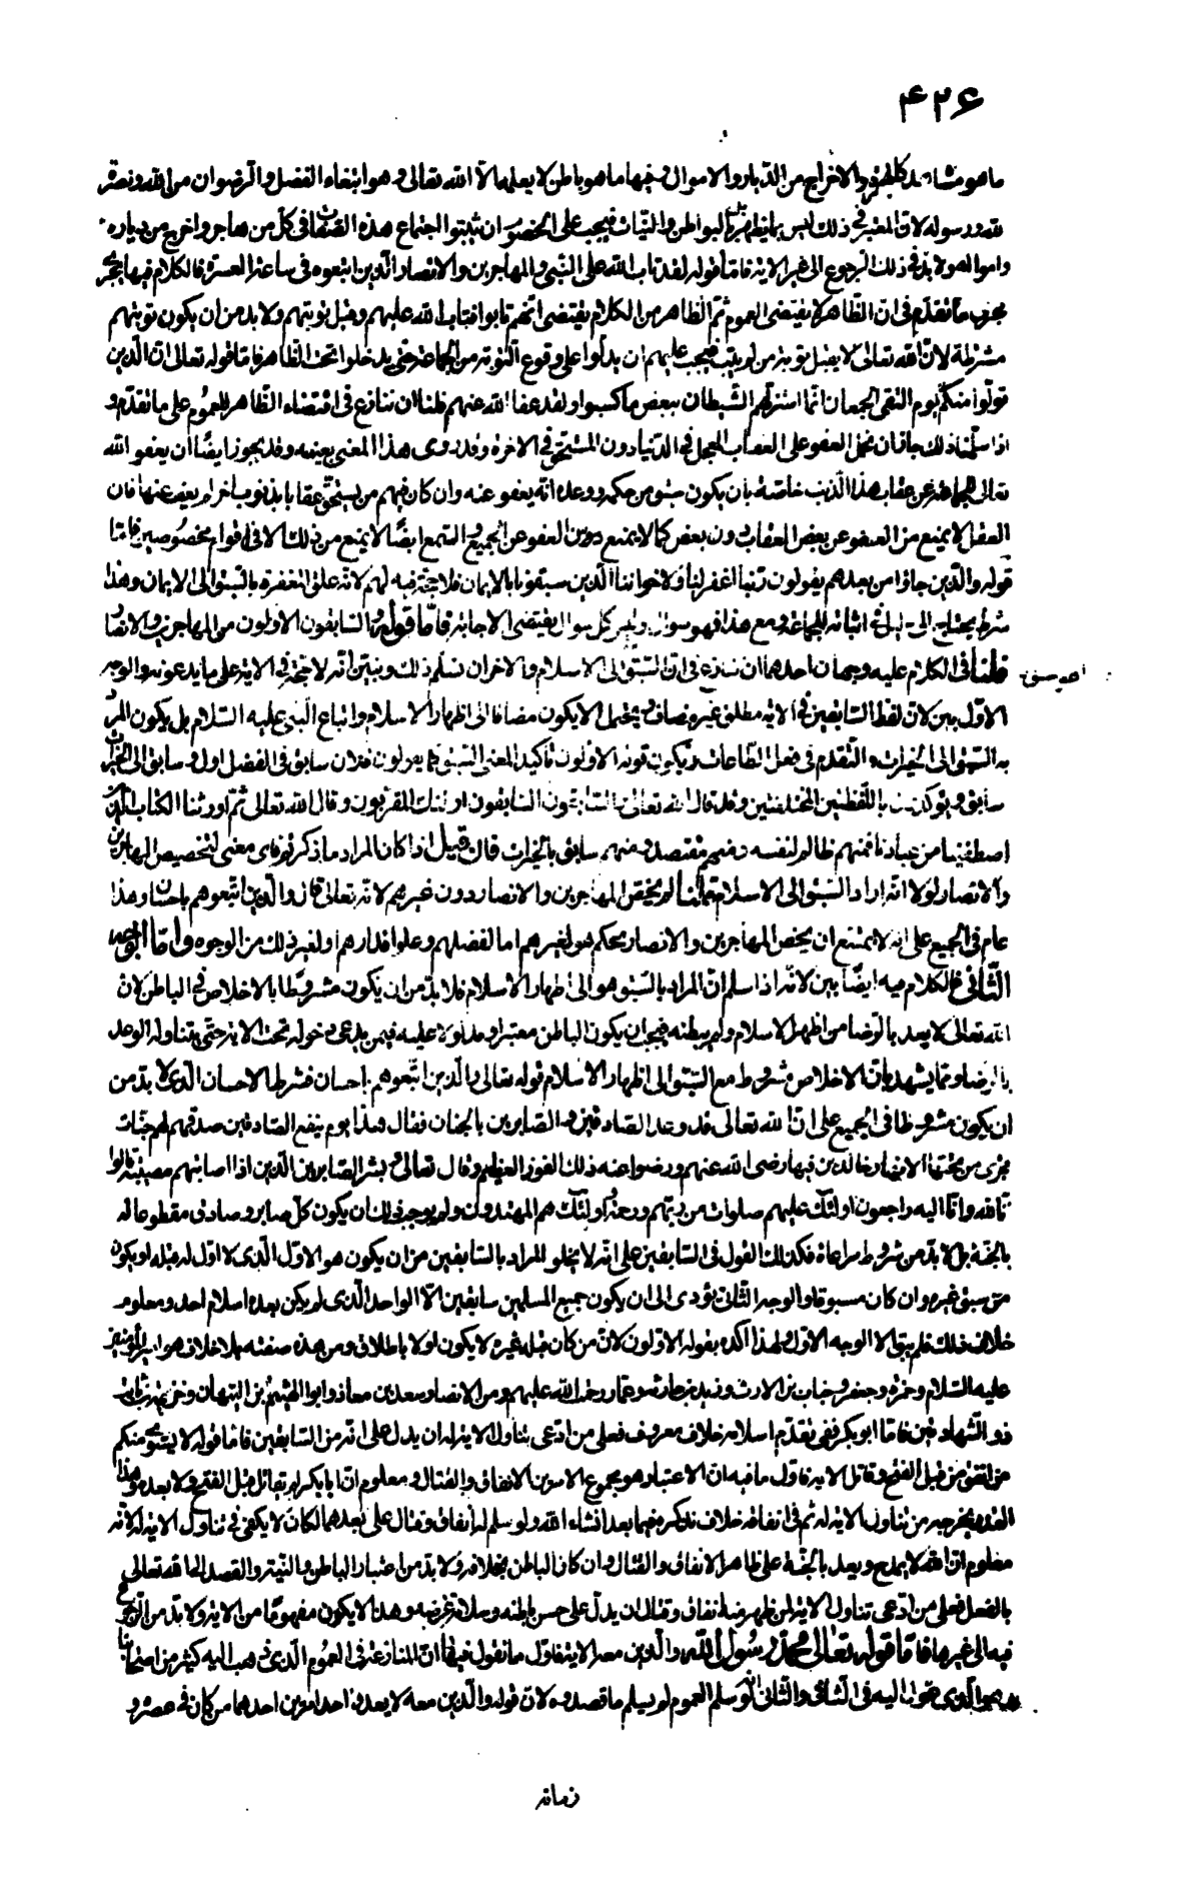 ۴۲۶
ما هو مشاهد كالهجرة والاخراج من الديار والاموال ومنها ما هو باطن لا يعلمه الّا الله تعالى وهو ابتغاء الفضل والرضوان من الله ونصرة
لله ورسوله لانّ المعتبر فى ذلك ليس بما يظهر بل بالبواطن والنيّات فيجب على الخصوم ان يثبتوا اجتماع هذه الصفات فى كلّ من هاجر واخرج من دياره
وامواله ولا بدّ فى ذلك من الرجوع الى غير الاية فامّا قوله لقد تاب الله على النبى والمهاجرين والانصار الّذين اتبعوه فى ساعة العسرة فالكلام فيها يجرى
مجرى ما تقدّم فى انّ الظاهر لا يقتضى العموم ثمّ الظاهر من الكلام يقتضى انّهم تابوا فتاب الله عليهم وقبل توبتهم ولا بد من ان يكون توبتهم
مشرطة لانّ الله تعالى لا يقبل توبة من لم يتب فيجب عليهم ان يدلّوا على وقوع التوبة من الجماعة حتى يدخلوا تحت الظاهر فامّا قوله تعالى انّ الّذين
تولّوا منكم يوم التقى الجمعان انّما استزلّهم الشيطان ببعض ما كسبوا ولقد عفا الله عنهم فلنا ان ننازع فى اقتضاء الظاهر للعموم على ما تقدّم و
اذا سلّمنا ذلك جاز ان نحمل العفو على العقاب المعجل فى الدنيا دون المستحقّ فى الاخرة وقد روى هذا المعنى بعينه وقد يجوز ايضًا ان يعفو الله
تعالى للجماعة عن عقاب هذا الذنب خاصّة بان يكون سبق من حكمه ووعده انّه يعفو عنه وان كان فيهم من يستحقّ عقابا بذنوب اخر لم يعف عنها فان
العقل لا يمنع من العفو عن بعض العقاب دون بعض كما لا يمنع من العفو عن الجميع والسمع ايضًا لا يمنع من ذلك الا فى اقوام مخصوصين فامّا
قوله والّذين جاؤا من بعدهم يقولون ربّنا اغفر لنا ولاخواننا الّذين سبقونا بالايمان فلا حجّة فيه لهم لانّه علّق المغفرة بالسبق الى الايمان وهذا
شرط يحتاج الى دليل فى اثباته للجماعة ومع هذا فهو سؤال وليس كل سؤال يقتضى الاجابة فامّا قوله والسابقون الاوّلون من المهاجرين والانصار
قلنا فى الكلام عليه وجهان احدهما ان ننازع فى انّ السبق الى الاسلام والاخر ان نسلّم ذلك ونبيّن انّه لا حجّة فى الاية على ما يدعونه والوجه
الاوّل بيّن لانّ لفظ السابقين فى الاية مطلق غير مضاف ويحتمل الّا يكون مضافا الى اظهار الاسلام واتباع النبى عليه السّلام بل يكون المراد
به السبق الى الخيرات والتقدّم فى فعل الطّاعات ويكون قوله الاوّلون تأكيدًا لمعنى السبق كما يقولون فلان سابق فى الفضل اوّل وسابق الى الخيرات
سابق ويؤكدون باللّفظين المختلفين وقد قال الله تعالى والسابقون السابقون اولئك المقرّبون وقال الله تعالى ثمّ اورثنا الكتاب الّذين
اصطفينا من عبادنا فمنهم ظالم لنفسه ومنهم مقتصد ومنهم سابق بالخيرات فان قيل اذا كان المراد ما ذكرتم فاى معنى لتخصيص المهاجرين
والانصار لولا انّه اراد السبق الى الاسلام قلنا لم يخصّ المهاجرين والانصار دون غيرهم لانّه تعالى قال والّذين اتّبعوهم باحسان وهذا
عام فى الجميع على انّه لا يمتنع ان يخص المهاجرين والانصار بحكم هو لغيرهم امّا لفضلهم وعلوّ اقدارهم او لغير ذلك من الوجوه وامّا الوجه
الثّانى فالكلام فيه ايضًا بيّن لانّه اذا سلم انّ المراد بالسّبق هو الى اظهار الاسلام فلا بدّ من ان يكون مشروطًا بالاخلاص فى الباطن لانّ
الله تعالى لا يعد بالرّضا من اظهر الاسلام ولم يبطنه فيجب ان يكون الباطن معتبرا ومدلولا عليه فيمن يدعى دخوله تحت الاية حتّى يتناوله الوعد
بالرّضا وممّا يشهد بان الاخلاص مشروط مع السّبق الى اظهار الاسلام قوله تعالى والّذين اتّبعوهم باحسان فشرط الاحسان الّذى لا بدّ من
ان يكون مشروطًا فى الجميع على انّ الله تعالى قد وعد الصادقين والصّابرين بالجنان فقال هذا يوم ينفع الصادقين صدقهم لهم جنّات
تجرى من تحتها الانهار خالدين فيها رضى الله عنهم ورضوا عنه ذلك الفوز العظيم وقال تعالى وبشر الصّابرين الّذين اذا اصابتهم مصيبة قالوا
انّا لله وانّا اليه راجعون اولئك عليهم صلوات من ربّهم ورحمة واولئك هم المهتدون ولم يوجب ذلك ان يكون كلّ صابر وصادق مقطوعا له
بالجنّة بل لا بدّ من شروط مراعاة فكذلك القول فى السابقين على انّه لا يخلو المراد بالسابقين من ان يكون هو الاوّل الّذى لا اوّل له قبله او يكون
من سبق غيره وان كان مسبوقا والوجه الثّانى يؤدى الى ان يكون جميع المسلمين سابقين الّا الواحد الّذى لم يكن بعده اسلام احد ومعلوم
خلاف ذلك فلم يبق الا الوجه الاوّل ولهذا اكّده بقوله الاوّلون لانّ من كان قبله غيره لا يكون اوّلا باطلاق ومن هذه صفته بلا خلاف هو امير المؤمنين
عليه السّلام وحمزة وجعفر وخباب بن الارث وزيد بن حارثة وعمّار رحمة الله عليهم ومن الانصار سعد بن معاذ وابوا الهيثم بن التيهان وخزيمة بن ثابت
ذو الشّهادتين فامّا ابو بكر ففى تقدّم اسلامه خلاف معروف فعلى من ادّعى تناول الاية له ان يدلّ على انّه من السّابقين فامّا قوله لا يستوى منكم
من انفق من قبل الفتح وقاتل الاية فاوّل ما فيه انّ الاعتبار هو بمجموع الامرين الانفاق والقتال ومعلوم انّ ابا بكر لم يقاتل قبل الفتح ولا بعده وهذا
القدر يخرجه من تناول الاية له ثم فى انفاقه خلاف نذكره فيما بعد انشاء الله ولو سلم له انفاق وقتال على بعدهما لكان لا يكفى فى تناول الاية له لانّه
معلوم انّ الله لا يمدح ويعد بالجنّة على ظاهر الانفاق والقتال وان كان الباطن بخلافه ولا بدّ من اعتبار الباطن والنيّة والقصد الى الله تعالى
بالفعل فعلى من ادّعى تناول الاية لمن ظهر منه انفاق وقتال ان يدلّ على حسن باطنه وسلامة غرضه وهذا لا يكون مفهومًا من الاية ولا بدّ من الرّجوع
فيه الى غيرها فامّا قوله تعالى محمّد رسول الله والّذين معه الاية فاوّل ما نقول فيها انّ المنازعة فى العموم الّذى ذهب اليه كثير من اصحابنا
هو الّذى ذهب اليه فى الشّافى والثّانى انّه لو سلم العموم لم يسلم ما قصدوه لانّ قوله والّذين معه لا يعدوا احد امرين احدهما من كان فى عصره و
زمانه